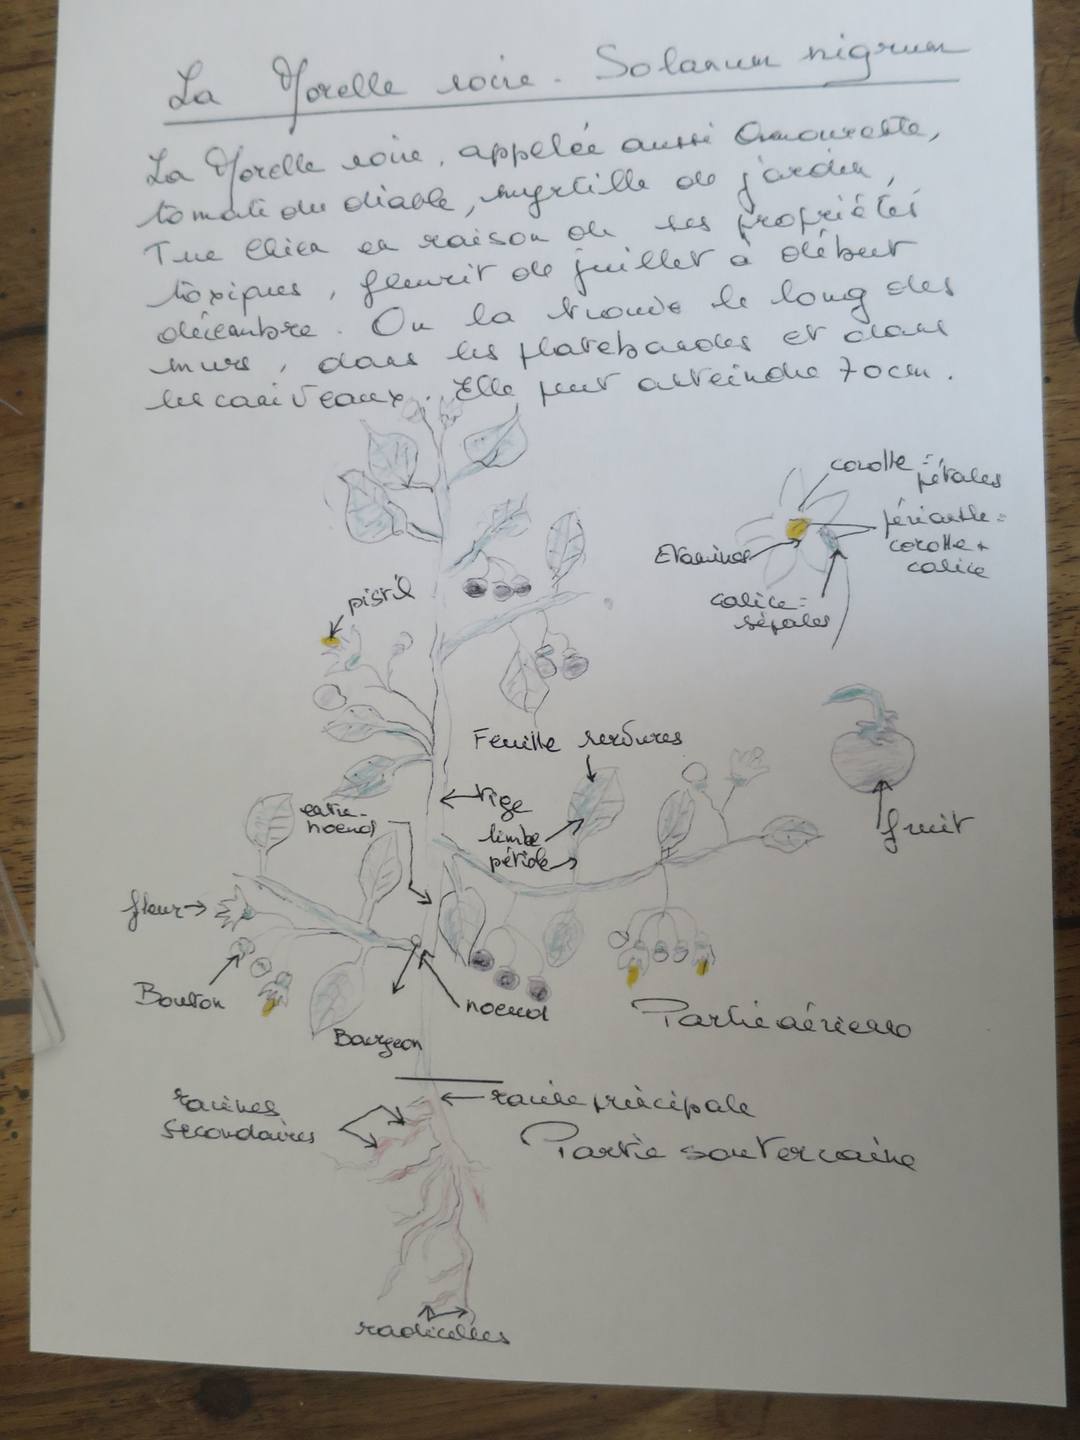 La Morelle noire - Solanum nigrum
La Morelle noire, appelée aussi Amourette,
tomate du diable, myrtille de jardin,
Tue Chien en raison de ses propriétés
toxiques, fleurit de juillet à début
décembre. On la trouve le long des
murs, dans les platebandes et dans
les caniveaux. Elle peut atteindre 70cm.
corolle =
pétales
périanthe =
corolle +
calice
Etamines
calice =
sépales
pistil
Feuille nervures
tige
entre-
noeud
limbe
pétiole
fruit
fleur
Bouton
noeud
Bourgeon
Partie aérienne
racines
secondaires
racine principale
Partie souterraine
radicelles